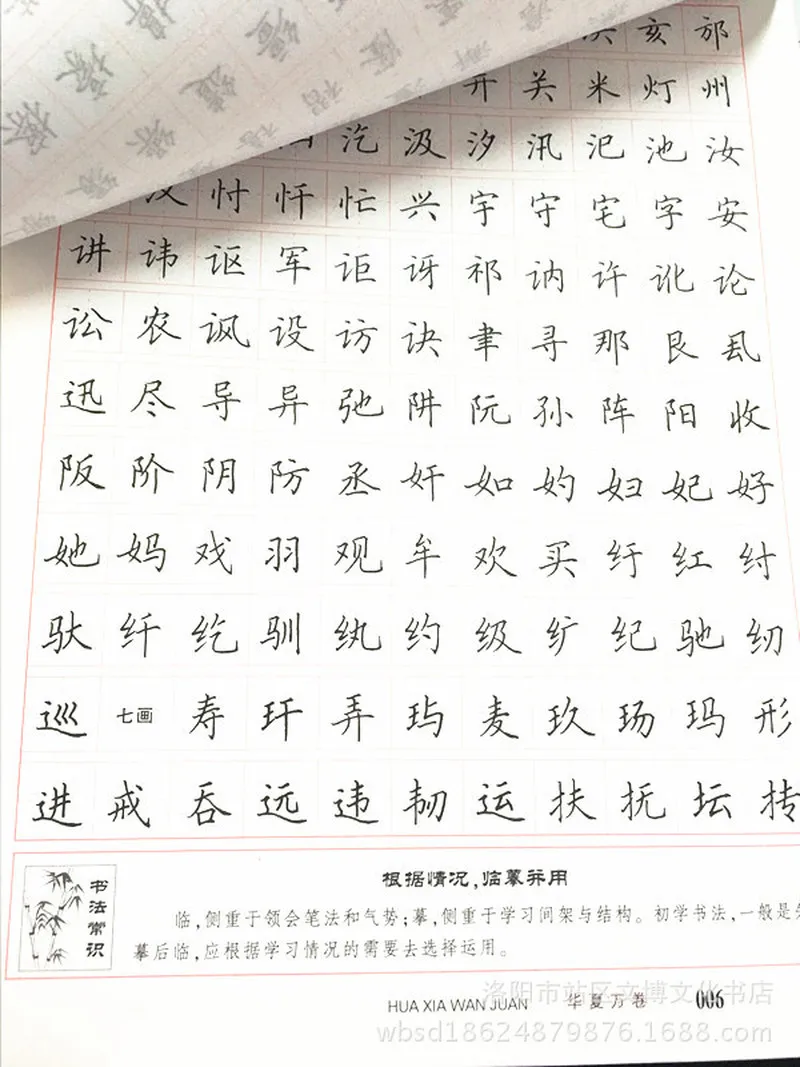 亥 邡
开 关 米 灯 州
汔 汲 汐 汛 汜 池 汝
汊 忖 忏 忙 兴 宇 守 宅 字 安
讲 讳 讴 军 讵 讶 祁 讷 许 讹 论
讼 农 讽 设 访 诀 聿 寻 那 艮 厾
迅 尽 导 异 弛 阱 阮 孙 阵 阳 收
阪 阶 阴 防 丞 奸 如 妁 妇 妃 好
她 妈 戏 羽 观 牟 欢 买 纡 红 纣
驮 纤 纥 驯 纨 约 级 纩 纪 驰 纫
巡 七画 寿 玕 弄 玙 麦 玖 玚 玛 形
进 戒 吞 远 违 韧 运 扶 抚 坛 抟
书法常识
根据情况,临摹并用
临,侧重于领会笔法和气势;摹,侧重于学习间架与结构。初学书法,一般是先
摹后临,应根据学习情况的需要去选择运用。
HUA XIA WAN JUAN 华夏万卷 006
洛阳市站区文博文化书店
wbsd18624879876.1688.com